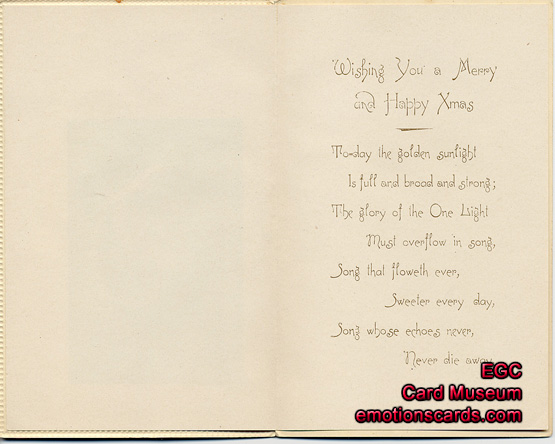 Wishing You a Merry
and Happy Xmas
To-day the golden sunlight
Is full and broad and strong;
The glory of the One Light
Must overflow in song,
Song that floweth ever,
Sweeter every day,
Song whose echoes never,
Never die away.
EGC
Card Museum
emotionscards.com